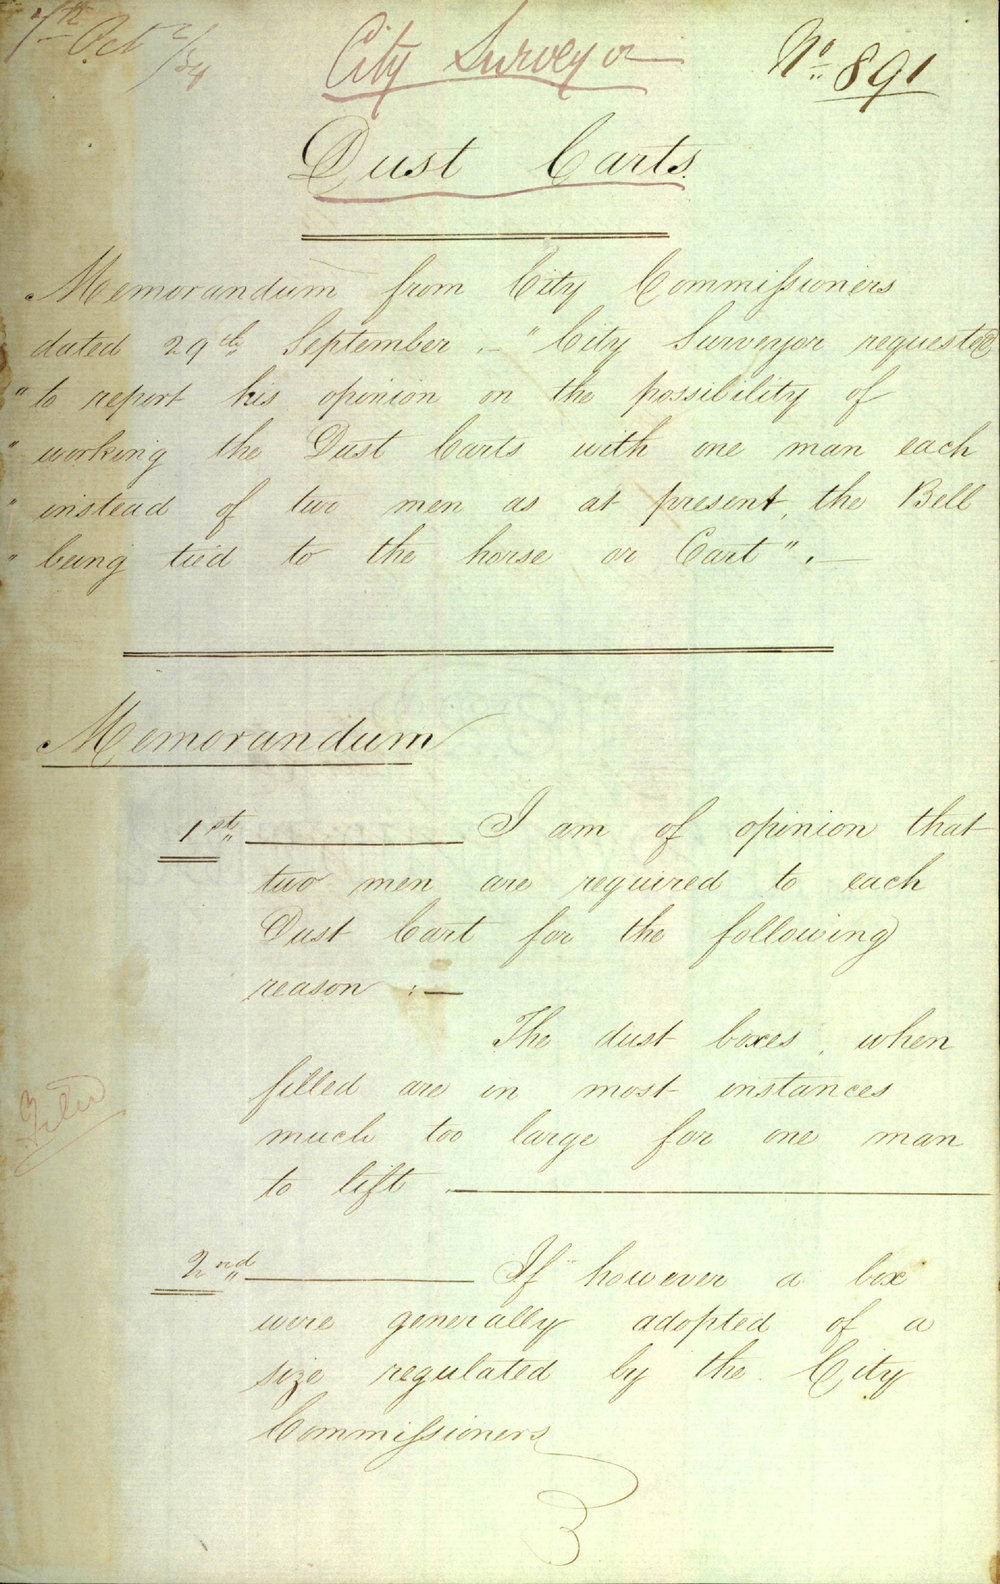 Oct 2/54
City Surveyor
No. 891
Dust Carts.
Memorandum from City Commissioners
dated 29th September. — "City Surveyor requested
" to report his opinion on the possibility of
" working the Dust Carts with one man each
" instead of two men as at present, the Bell
" being tied to the horse or Cart". —
Memorandum
1st I am of opinion that
two men are required to each
Dust Cart for the following
reason :—
The dust boxes, when
filled are in most instances
much too large for one man
to lift.
2nd If however a box
were generally adopted of a
size regulated by the City
Commissioners